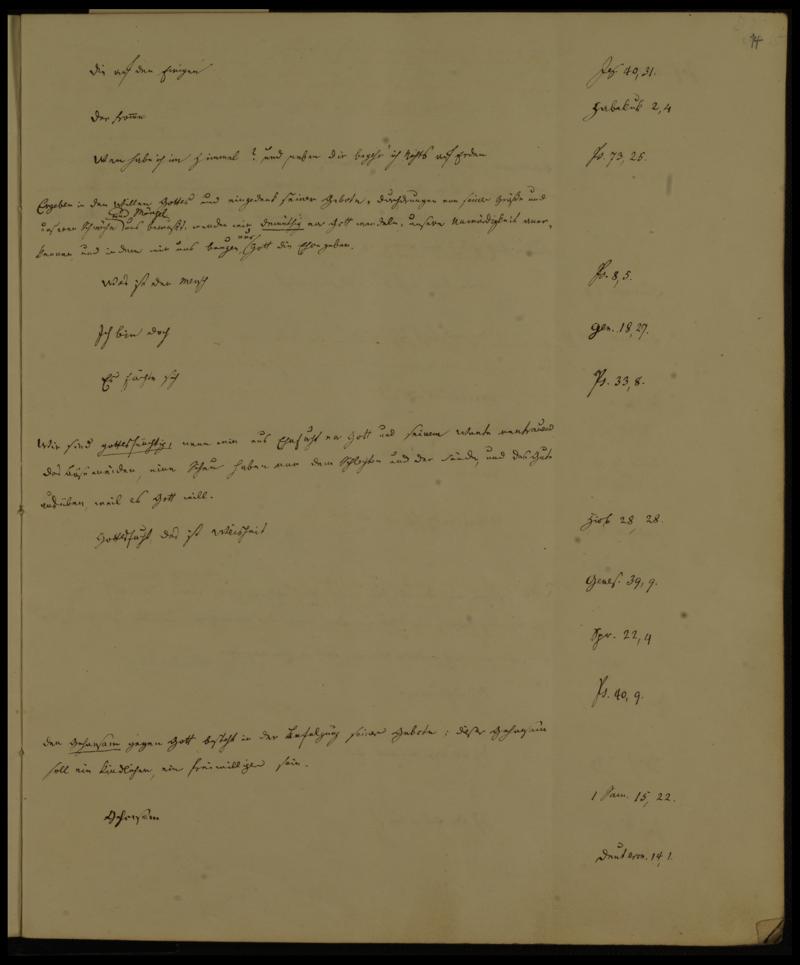 14
Die auf den Ewigen Jes. 40,31.
Der Fromme Habakuk 2,4
Wen habe ich im Himmel? und neben dir begehr' ich Nichts auf Erden Ps. 73, 25.
Ergeben in den Willen Gottes und eingedenk seiner Gebote, durchdrungen von seiner Größe und
und Mängel
unserer Schwäche uns bewußt, werden wir demüthig vor Gott wandeln, unsere Unwürdigkeit aner-
nur
kennen und indem wir uns beugen, Gott die Ehre geben.
Was ist der Mensch Ps. 8,5.
Ich bin doch Gen. 18,27.
Es fürchte sich Ps. 33,8.
Wir sind gottesfürchtig, wenn wir aus Ehrfurcht vor Gott und seinem Worte vertrauend
das Böse meiden, eine Scheu haben vor dem Schlechten und der Sünde, und das Gute
ausüben, weil es Gott will.
Gottesfurcht das ist Weisheit Hiob 28 28.
Genes. 39, 9.
Spr. 22,4
Ps. 40, 9.
Der Gehorsam gegen Gott besteht in der Befolgung seiner Gebote; dieser Gehorsam
soll ein kindlicher, ein freiwilliger sein.
1 Sam. 15, 22.
Gehorsam
Deuteron. 14,1.